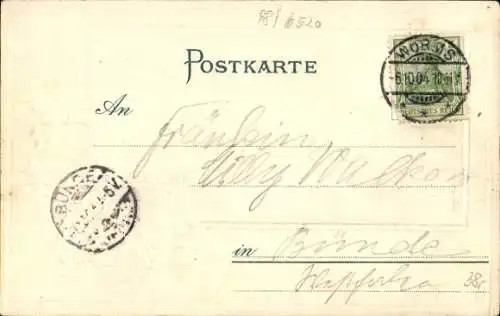 6520
POSTKARTE
WORMS
6.10.04
An
Fräulein
Willy Walko
BÜNDE
in Bünde
Westfalen